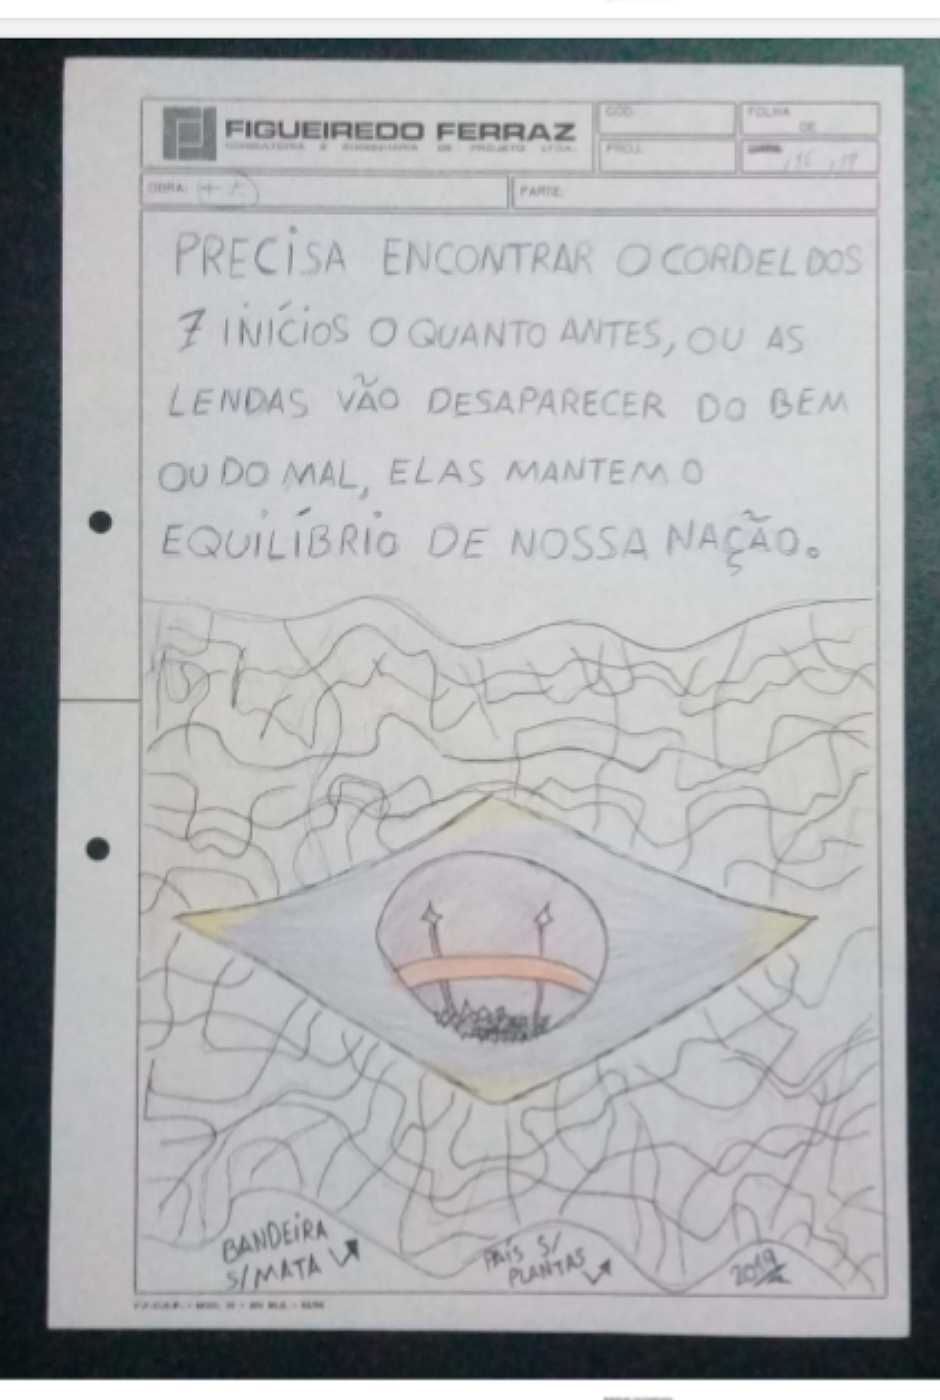 FIGUEIREDO FERRAZ
CONSULTORIA E ENGENHARIA DE PROJETO LTDA.
CÓD.
FOLHA
DE
PROJ.
OBRA:
PARTE:
PRECISA ENCONTRAR O CORDEL DOS
7 INÍCIOS O QUANTO ANTES, OU AS
LENDAS VÃO DESAPARECER DO BEM
OU DO MAL, ELAS MANTEM O
EQUILÍBRIO DE NOSSA NAÇÃO.
BANDEIRA
S/MATA
PAÍS S/
PLANTAS
2019